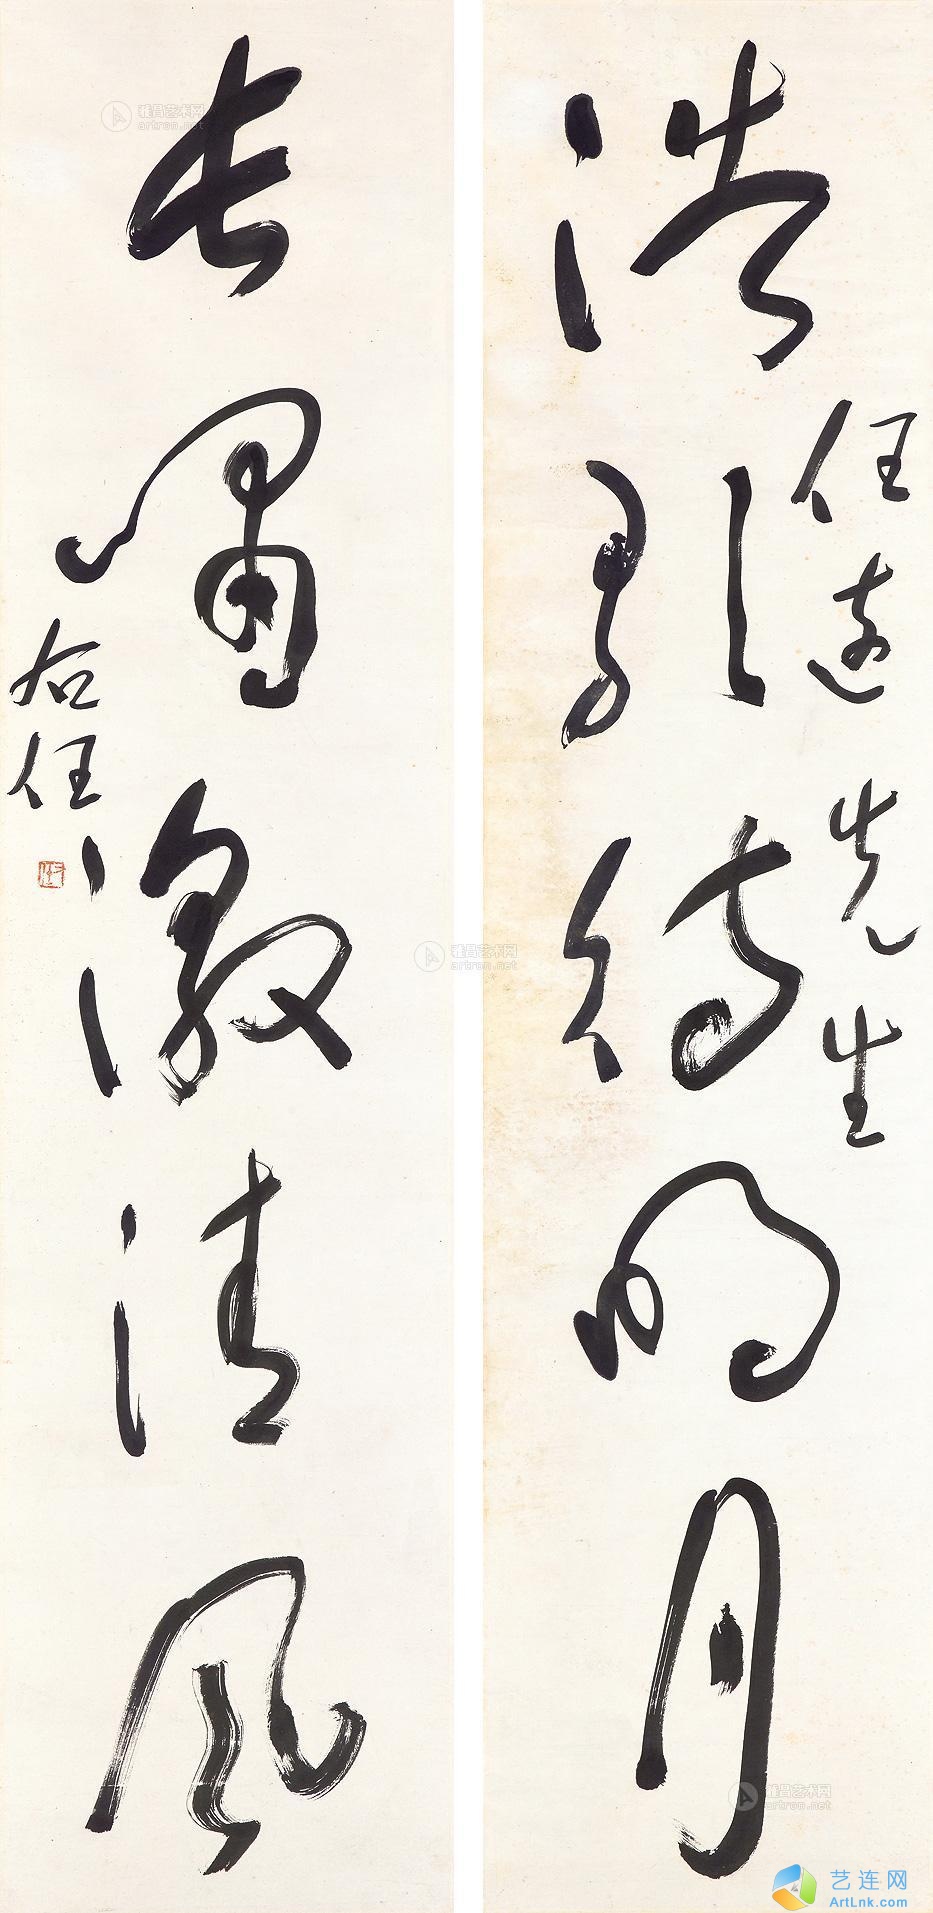 浩引待明月
任遠先生
長嘯激清風
右任
雅昌艺术网
artron.net
雅昌艺术网
artron.net
雅昌艺术网
artron.net
艺连网
ArtLnk.com